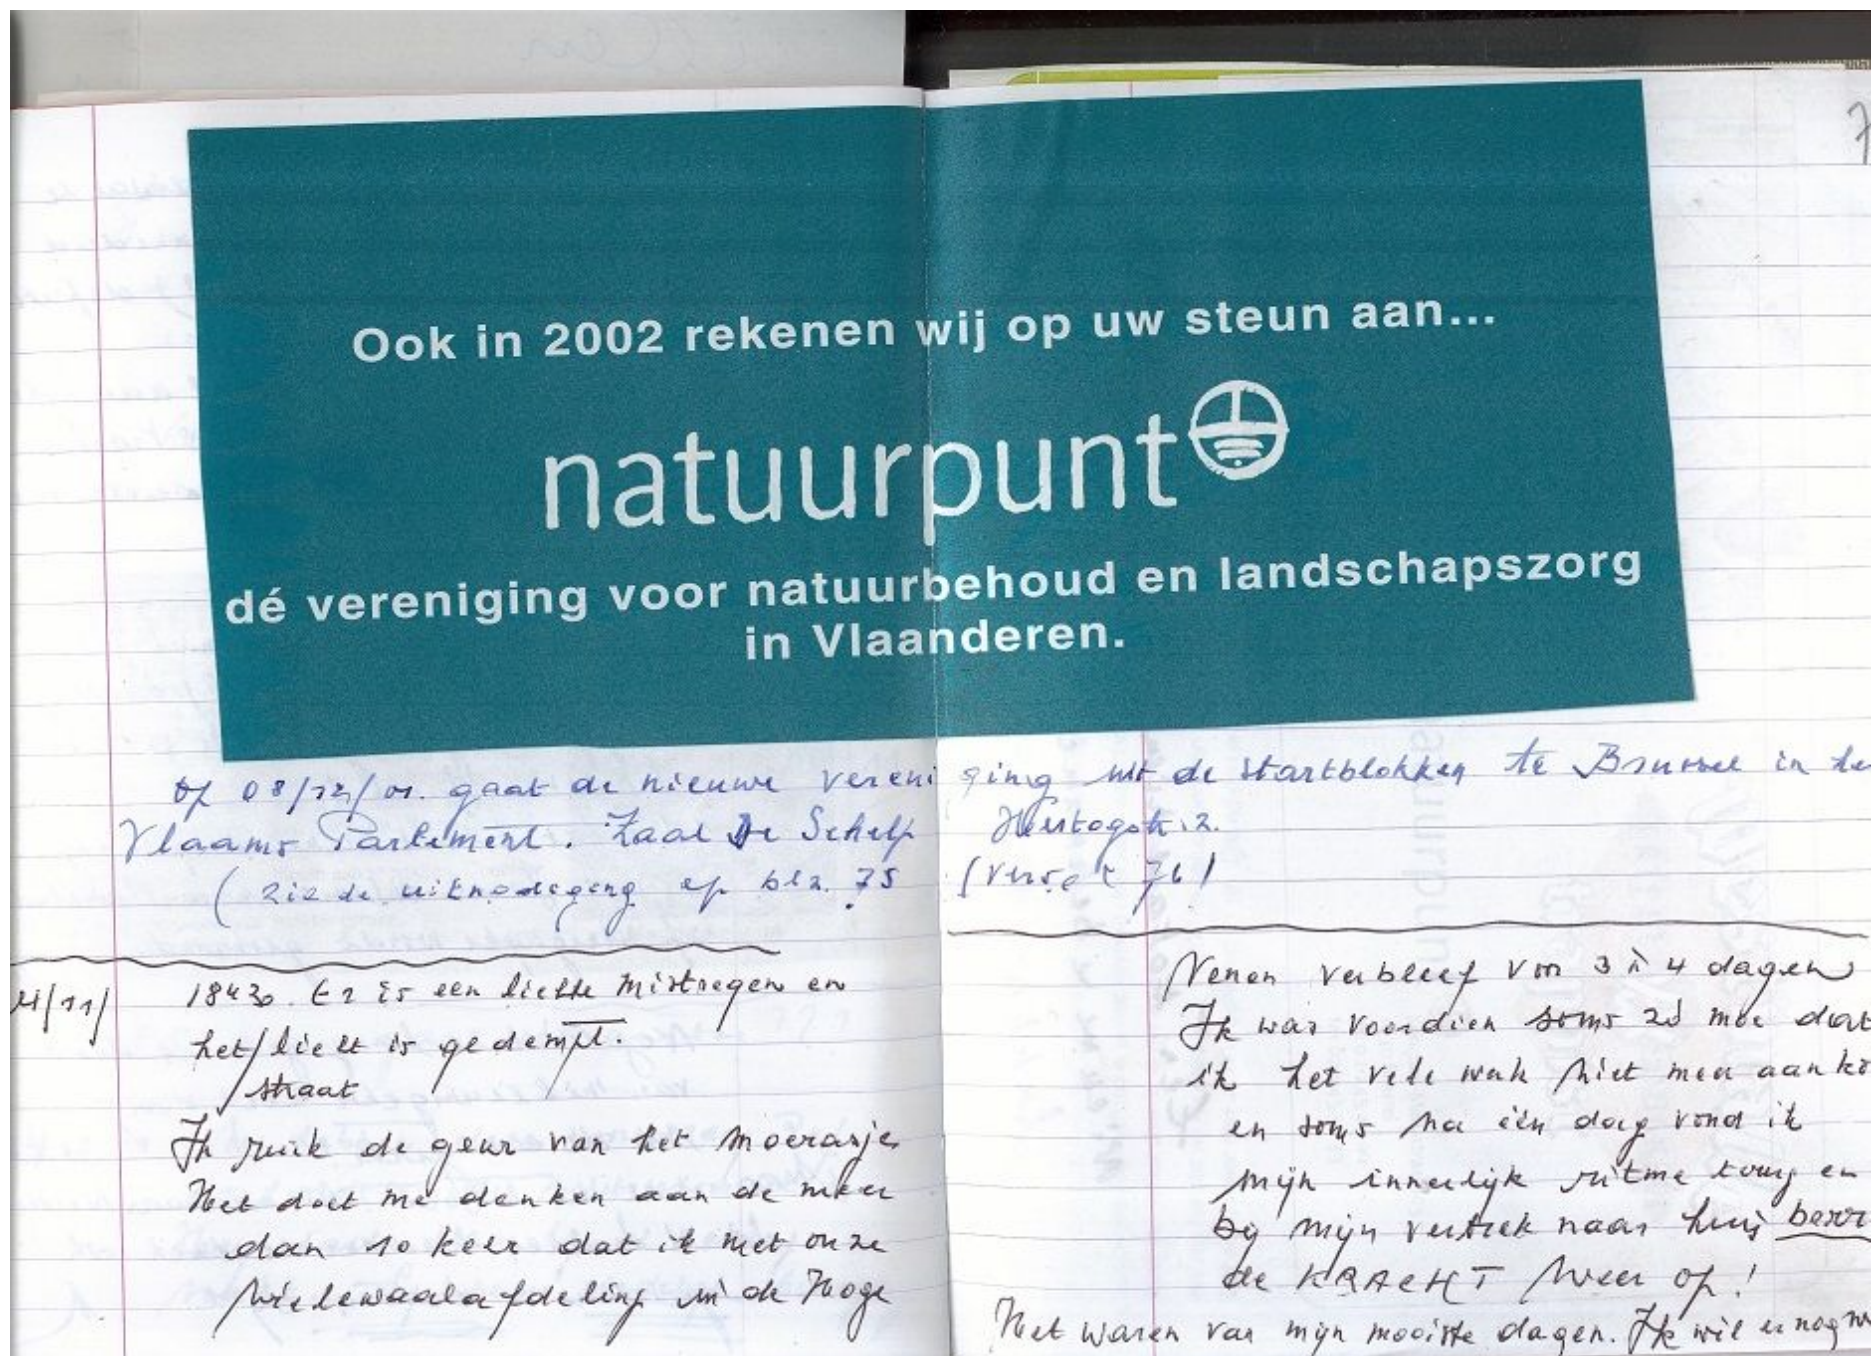 Ook in 2002 rekenen wij op uw steun aan...
natuurpunt
dé vereniging voor natuurbehoud en landschapszorg
in Vlaanderen.
op 08/12/01. gaat de nieuwe vereniging uit de startblokken te Brussel in
Vlaams Parlement. Zaal De Schelp Hertogstr. 2.
(zie de uitnodeging op blz. 75 (verso 76)
1843. Er is een lichte mistregen en
het licht is gedempt.
straat
Ik ruik de geur van het moerasje
Het doet me denken aan de meer
dan 10 keer dat ik met onze
Wielewaalafdeling in de Hoge
Venen verbleef voor 3 à 4 dagen
Ik was voordien soms zó moe dat
ik het vele werk niet meer aanko
en soms na één dag vond ik
mijn innerlijk ritme terug en
bij mijn vertrek naar huis
de KRACHT weer op!
Het waren van mijn mooiste dagen. Ik wil er nog